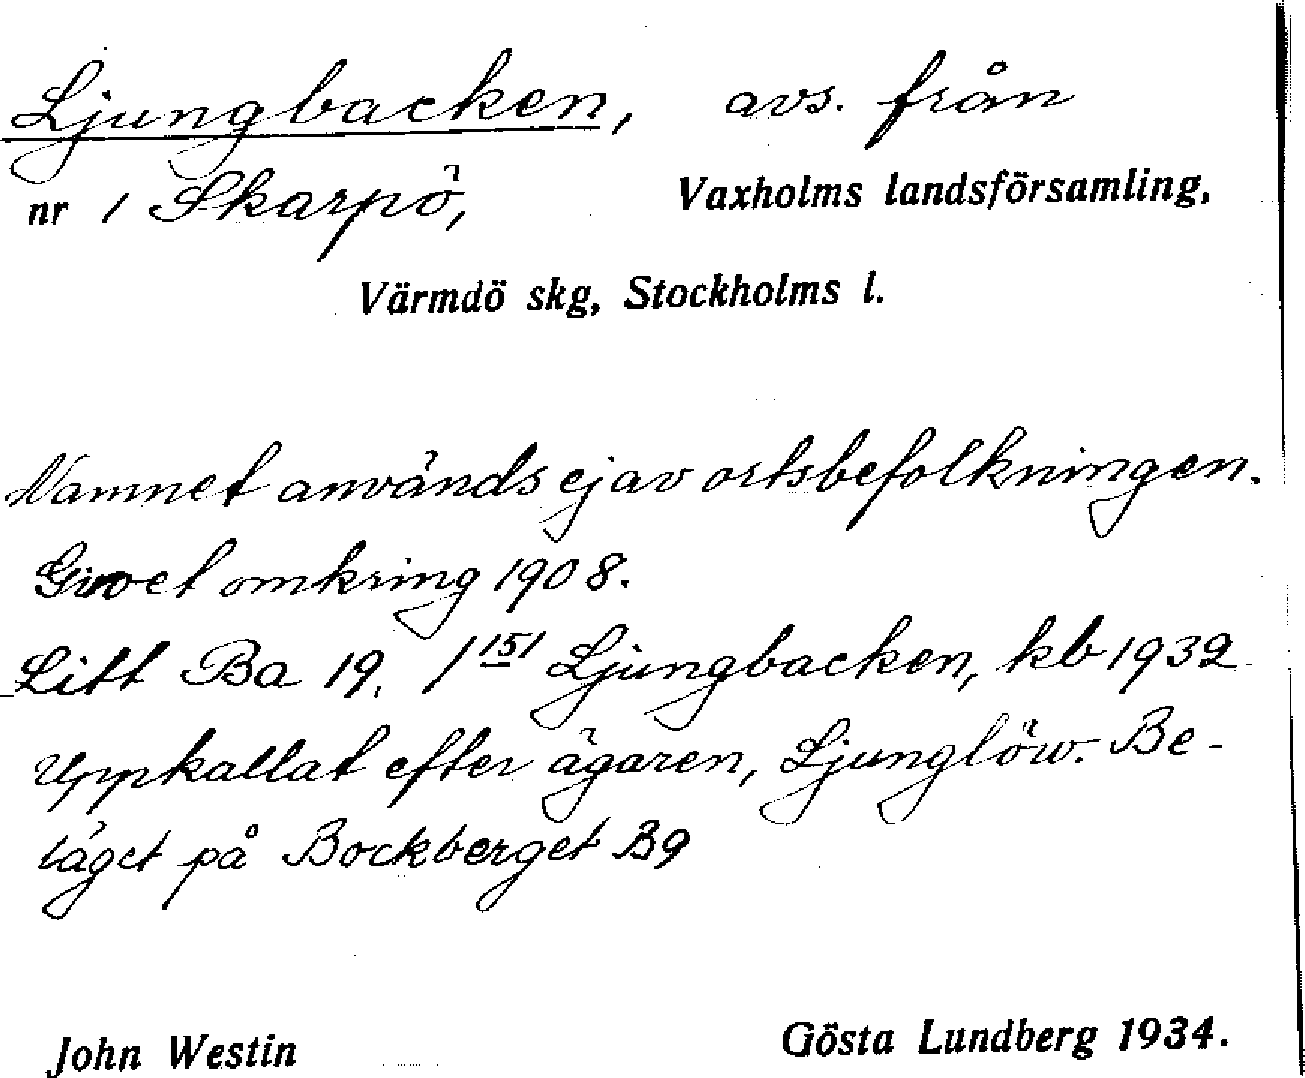 Ljungbacken, avs. från
nr 1 Skarpö, Vaxholms landsförsamling,
Värmdö skg, Stockholms l.
Namnet används ej av ortsbefolkningen.
Givet omkring 1908.
Litt Ba 19, 1151 Ljungbacken, kb 1932
Uppkallat efter ägaren, Ljunglöw. Be-
läget på Bockberget B9
John Westin Gösta Lundberg 1934.